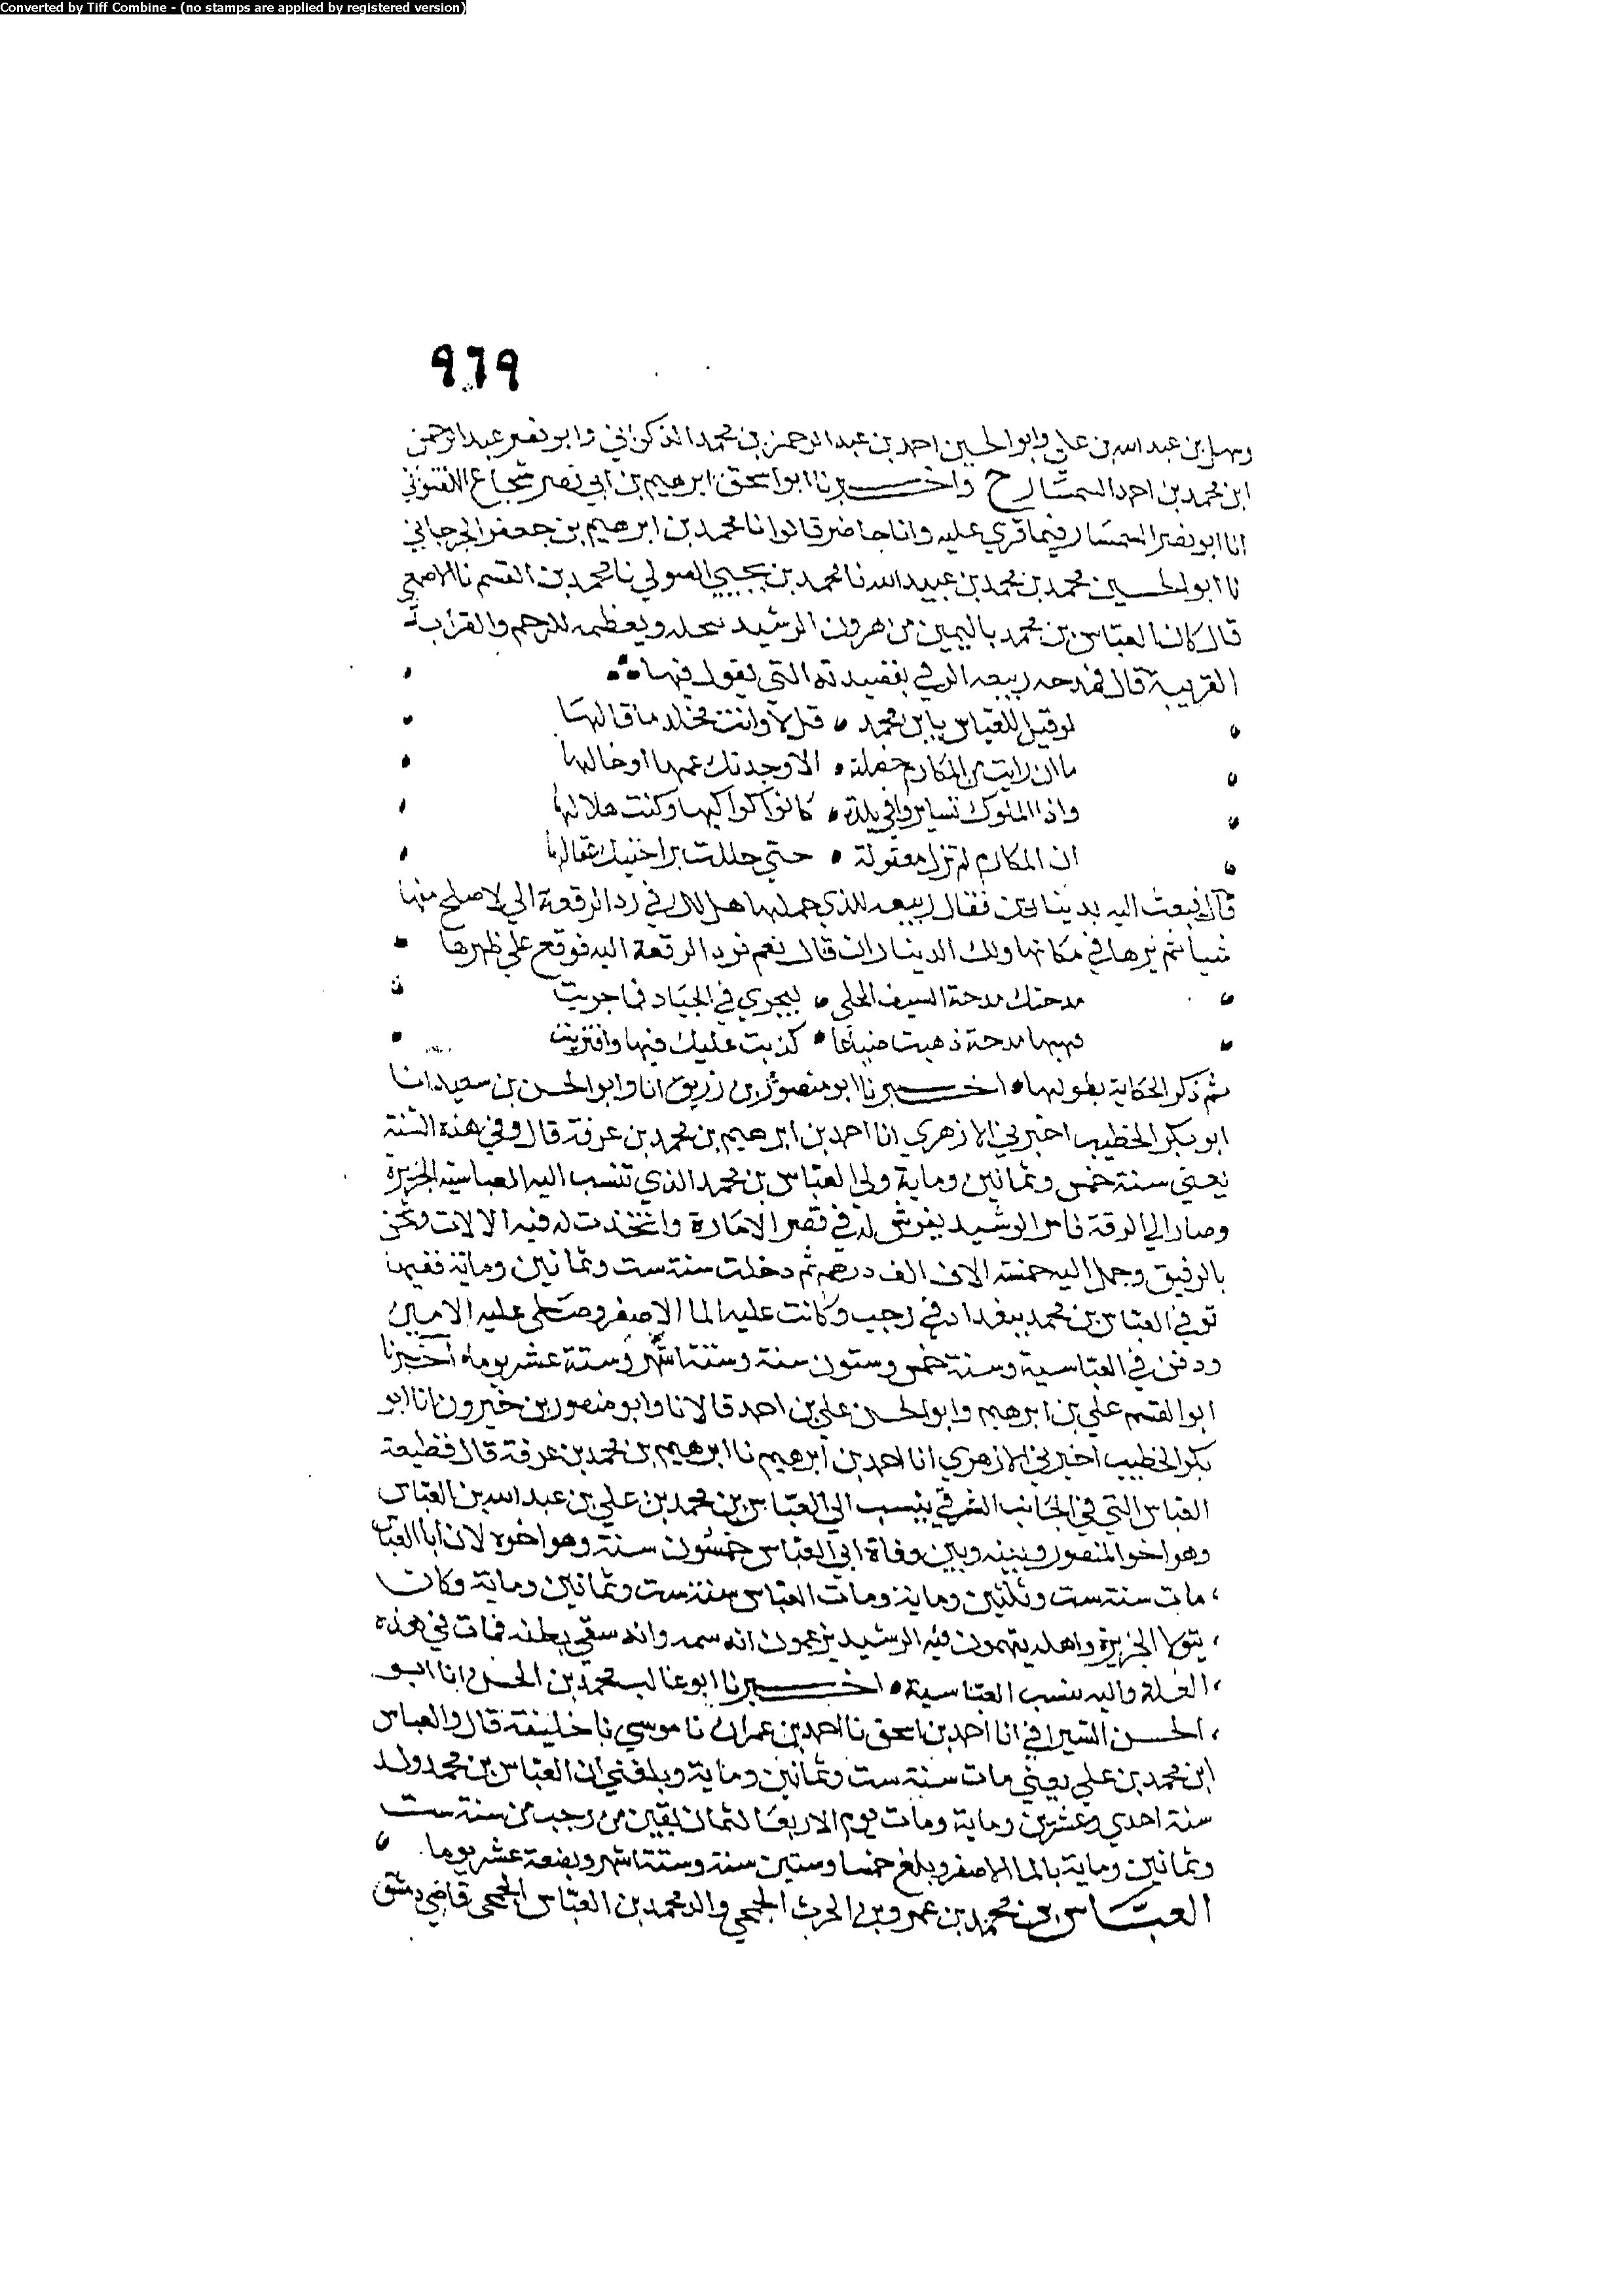 Converted by Tiff Combine - (no stamps are applied by registered version)
٩٦٩
وسهل بن عبد الله بن علي وابو الحسين احمد بن عبد الرحمن بن محمد الذكواني وابو نصر عبد الرحمن
ابن محمد بن احمد السمسار ح واخبرنا ابو اسحق ابرهيم بن ابي نصر شجاع اللفتواني
انا ابو نصر السمسار فيما قري عليه وانا حاضر قالوا نا محمد بن ابرهيم بن جعفر الجرجاني
نا ابو الحسين محمد بن محمد بن عبيد الله نا محمد بن يحيي الصولي نا محمد بن القسم نا الاصمعي
قال كان العباس بن محمد باليمين من هرون الرشيد يجله ويعظمه للرحم والقرابة
القريبة قال فمدحه ربيعه الرقي بقصيدته التي يقول فيها
لو قيل للعباس يا بن محمد قل لا وانت مخلد ما قالها
ما ان رايت من المكارم خصلة الا وجدتك عمها او خالها
واذا الملوك تسايروا في بلدة كانوا كواكبها وكنت هلالها
ان المكارم لم تزل معقولة حتي حللت براحتيك عقالها
قال فبعث اليه بدينارين فقال ربيعه للذي حملها هل لك في رد الرقعة الي لاصلح منها
شيا ثم تردها في مكانها ولك الديناران قال نعم فرد الرقعة اليه فوقع علي ظهرها
مدحتك مدحة السيف المحلي ليجري في الجياد فما جريت
فهبها مدحة ذهبت ضياعا كذبت عليك فيها وافتريت
ثم ذكر الحكاية بطولها اخبرنا ابو منصور بن زريق انا وابو الحسن بن سعيد انا
ابو بكر الخطيب اخبرني الازهري انا احمد بن ابرهيم بن محمد بن عرفة قال وفي هذه السنة
يعني سنة خمس وثمانين وماية ولي العباس بن محمد الذي تنسب اليه العباسية الجزيرة
وصار الي الرقة فامر الرشيد بفرش له في قصر الامارة واتخذت له فيه الالات وشحن
بالرقيق وحمل اليه خمسة الاف الف درهم ثم دخلت سنة ست وثمانين وماية ففيها
توفي العباس بن محمد ببغداد في رجب وكانت عليه الما الاصفر وصلى عليه الامين
ودفن في العباسية وسنة خمس وستون سنة وستة اشهر وستة عشر يوما اخبرنا
ابو القسم علي بن ابرهيم وابو الحسن علي بن احمد قالا نا وابو منصور بن خيرون انا ابو
بكر الخطيب اخبرني الازهري انا احمد بن ابرهيم نا ابرهيم بن محمد بن عرفة قال فقطيعة
العباس التي في الجانب الشرقي ينسب الي العباس بن محمد بن علي بن عبد الله بن العباس
وهو اخو المنصور وبينه وبين وفاة ابي العباس خمسون سنة وهو اخوه لان ابا العباس
مات سنة ست وثلثين وماية ومات العباس سنة ست وثمانين وماية وكان
يتولا الجزيرة واهله يتهمون فيه الرشيد يزعمون انه سمه وانه سقي بطنه فمات في هذه
العلة واليه ينسب العباسية اخبرنا ابو غالب محمد بن الحسن انا ابو
الحسن السيرافي انا احمد بن اسحق نا احمد بن عمران نا موسي نا خليفة قال والعباس
ابن محمد بن علي يعني مات سنة ست وثمانين وماية وبلغني ان العباس بن محمد ولد
سنة احدي وعشرين وماية ومات يوم الاربعا لثمان بقين من رجب من سنة ست
وثمانين وماية بالما الاصفر وبلغ خمسا وستين سنة وستة اشهر وبضعة عشر يوما
العباس بن محمد بن عمرو بن الحرث الجمحي والد محمد بن العباس الجمحي قاضي دمشق